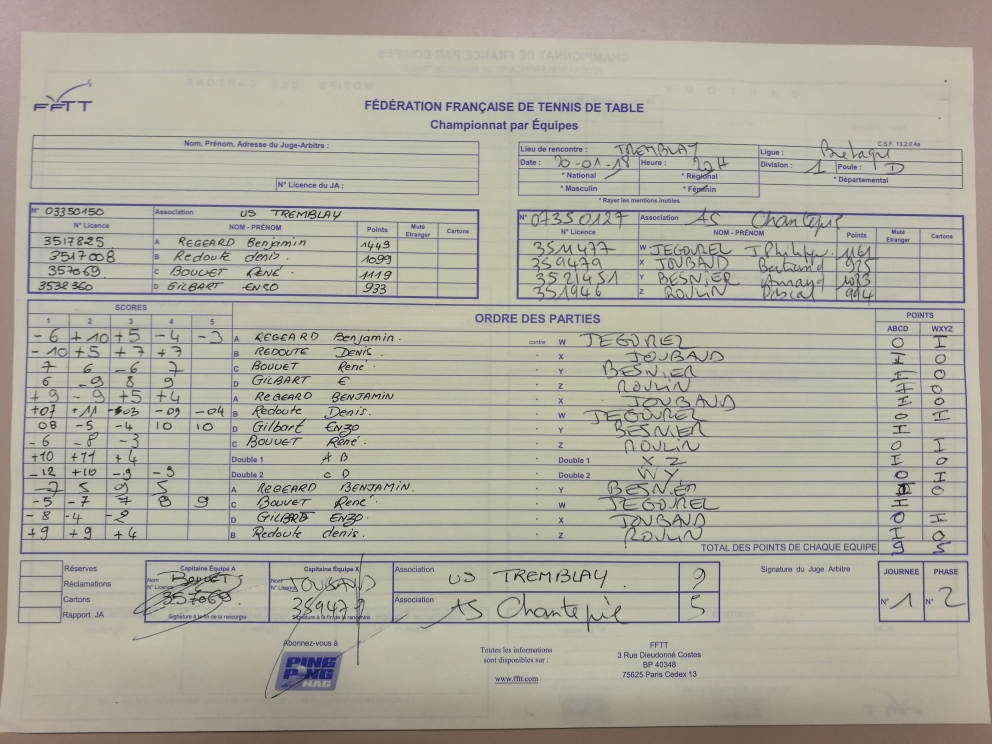 FFTT
FÉDÉRATION FRANÇAISE DE TENNIS DE TABLE
Championnat par Équipes
C.S.F. 13.2.0.4a
Nom, Prénom, Adresse du Juge-Arbitre :
N° Licence du JA :
Lieu de rencontre : TREMBLAY Ligue : Bretagne
Date : 20-01-18 Heure : 20H Division : 1 Poule : D
* National * Régional * Départemental
* Masculin * Féminin
* Rayer les mentions inutiles
N° 03350150 Association US TREMBLAY
N° Licence NOM - PRÉNOM Points Muté Etranger Cartons
3517825 A REGEARD Benjamin 1449
3517008 B Redoute denis. 1099
357069 C BOUVET RENÉ. 1119
3532360 D GILBART ENZO 933
N° 07350127 Association AS Chantepie
N° Licence NOM - PRÉNOM Points Muté Etranger Cartons
3511477 W JEGOUREL J Philippe 1161
359479 X JOUBAUD Bertrand 925
3521451 Y BESNIER Arnaud 1033
351946 Z ROULIN Pascal 994
SCORES ORDRE DES PARTIES POINTS
1 2 3 4 5 ABCD WXYZ
-6 +10 +5 -4 -3 A REGEARD Benjamin. contre W JEGOUREL 0 I
-10 +5 +7 +7 B REDOUTE DENIS. " X JOUBAUD I 0
7 6 -6 7 C BOUVET René. " Y BESNIER I 0
6 -9 8 9 D GILBART E " Z ROULIN I 0
+9 -9 +5 +4 A REGEARD BENJAMIN " X JOUBAUD I 0
+07 +11 -03 -09 -04 B Redoute Denis. " W JEGOUREL 0 I
08 -5 -4 10 10 D Gilbart Enzo " Y BESNIER I
-6 -8 -3 C BOUVET René. " Z ROULIN 0 I
+10 +11 +4 Double 1 A B " Double 1 X Z I 0
-12 +10 -9 -9 Double 2 C D " Double 2 W Y 0 I
-7 5 9 5 A REGEARD BENJAMIN. " Y BESNIER I 0
-5 -7 7 8 9 C BOUVET René. " W JEGOUREL I
-8 -4 -2 D GILBART ENZO. " X JOUBAUD 0 I
+9 +9 +4 B Redoute denis. " Z ROULIN I 0
TOTAL DES POINTS DE CHAQUE EQUIPE 9 5
Réserves
Réclamations
Cartons
Rapport JA
Capitaine Équipe A
Nom BOUVET
N° Licence 357069
Signature à la fin de la rencontre
Capitaine Équipe X
Nom JOUBAUD
N° Licence 359479
Signature à la fin de la rencontre
Association US TREMBLAY 9
Association AS Chantepie 5
Signature du Juge Arbitre
JOURNEE PHASE
N° 1 N° 2
Abonnez-vous à
PING PONG MAG
Toutes les informations
sont disponibles sur :
www.fftt.com
FFTT
3 Rue Dieudonné Costes
BP 40348
75625 Paris Cedex 13